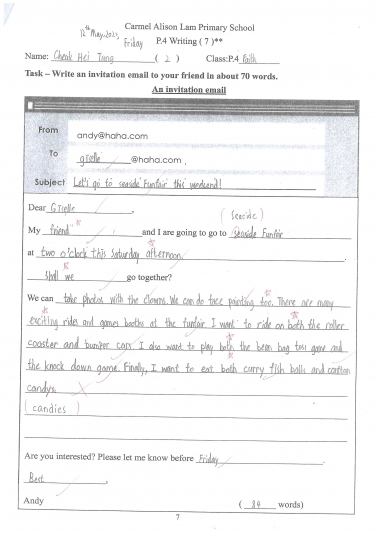 Carmel Alison Lam Primary School
12th May, 2023, Friday
P.4 Writing ( 7 )**
Name: Cheuk Hei Tung ( 2 ) Class:P.4 Faith
Task – Write an invitation email to your friend in about 70 words.
An invitation email
From andy@haha.com
To giselle @haha.com ,
Subject Let's go to seaside Funfair this weekend!
Dear Giselle ,
( Seaside )
My friend and I are going to go to seaside Funfair
at two o'clock this Saturday afternoon .
Shall we go together?
We can take photos with the clowns. We can do face painting too. There are many
exciting rides and games booths at the funfair. I want to ride on both the roller
coaster and bumper cars. I also want to play both the bean bag toss game and
the knock down game. Finally, I want to eat both curry fish balls and cotton
candys.
( candies )
Are you interested? Please let me know before Friday .
Best ,
Andy ( 84 words)
7